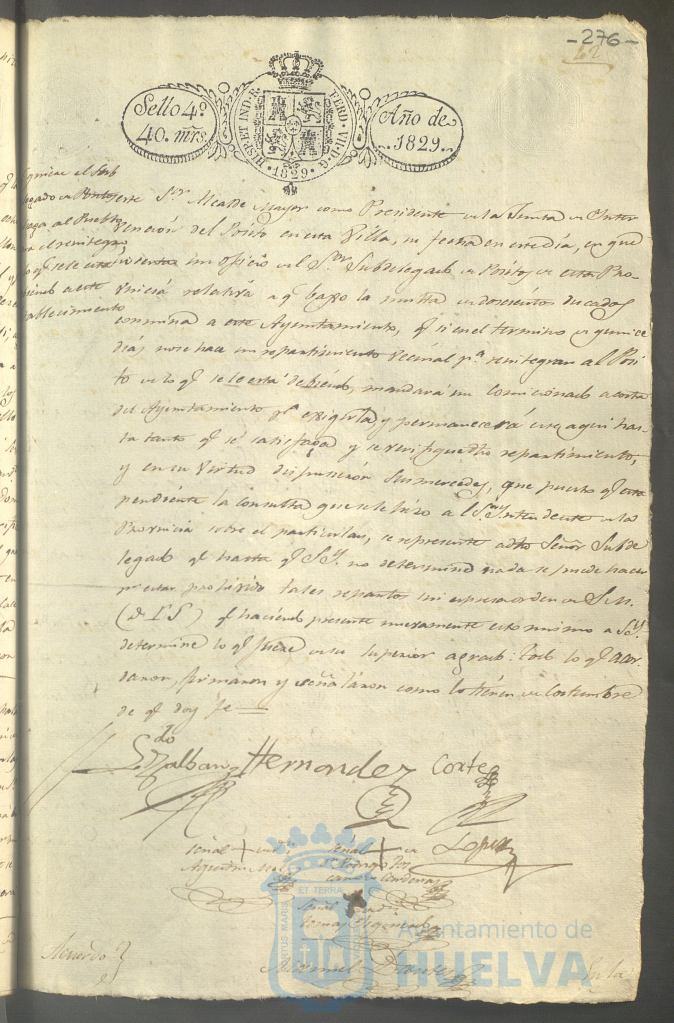 -276-
42
Sello 4º
40. mrs.
HISP. ET IND. R.
FERD. VII. D. G.
1829
Año de
1829.
el Sub
al Pueblo
el reintegro
se le está
a este
establecimiento
este Sr. Alcalde Mayor como Presidente en la Junta de Inter
vencion del Pósito en esta Villa, su fecha en este dia, en que
un Oficio del Sr. Subdelegado de Pósitos de esta Pro
vincia relativa a q. bajo la multa de doscientos ducados
conmina a este Ayuntamiento, q. si en el termino de quince
dias no se hace un repartimiento vecinal pa. reintegrar al Pósi
to de lo q. se le está debiendo, mandará un comisionado a costa
del Ayuntamiento pa. exigirla, y permanecerá este aqui has-
ta tanto q. se satisfaga y se verifique dho repartimiento,
y en su virtud dispusieron Sus mercedes, que puesto q. esta
pendiente la consulta que se le hizo al Sr. Intendente de la
Provincia sobre el particular, se represente a dho Señor Subde
legado q. hasta q. S.Y. no determine nada se puede hacer
por estar prohivido tales repartos sin espresa orden de S.M.
(D. L. G.) q. haciendo presente nuevamente esto mismo a S.Y.
determine lo q. fuere de su superior agrado: Todo lo q. acor-
daron, firmaron y señalaron como lo tienen de costumbre
de q. doy fe
Ldo
Galban Hernandez Corte
señal + señal + de Lopez
Agustin Rodrigo
Cardenas
señal
Tomas
Manuel
Acuerdo
En la
PORTUS MARIS ET TERRAE
Ayuntamiento de
HUELVA